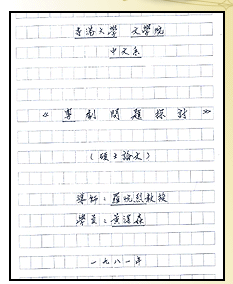 香港大學 文學院
中文系
《粵劇問題探討》
（碩士論文）
導師：羅忼烈教授
學員：黃滔森
一九八一年